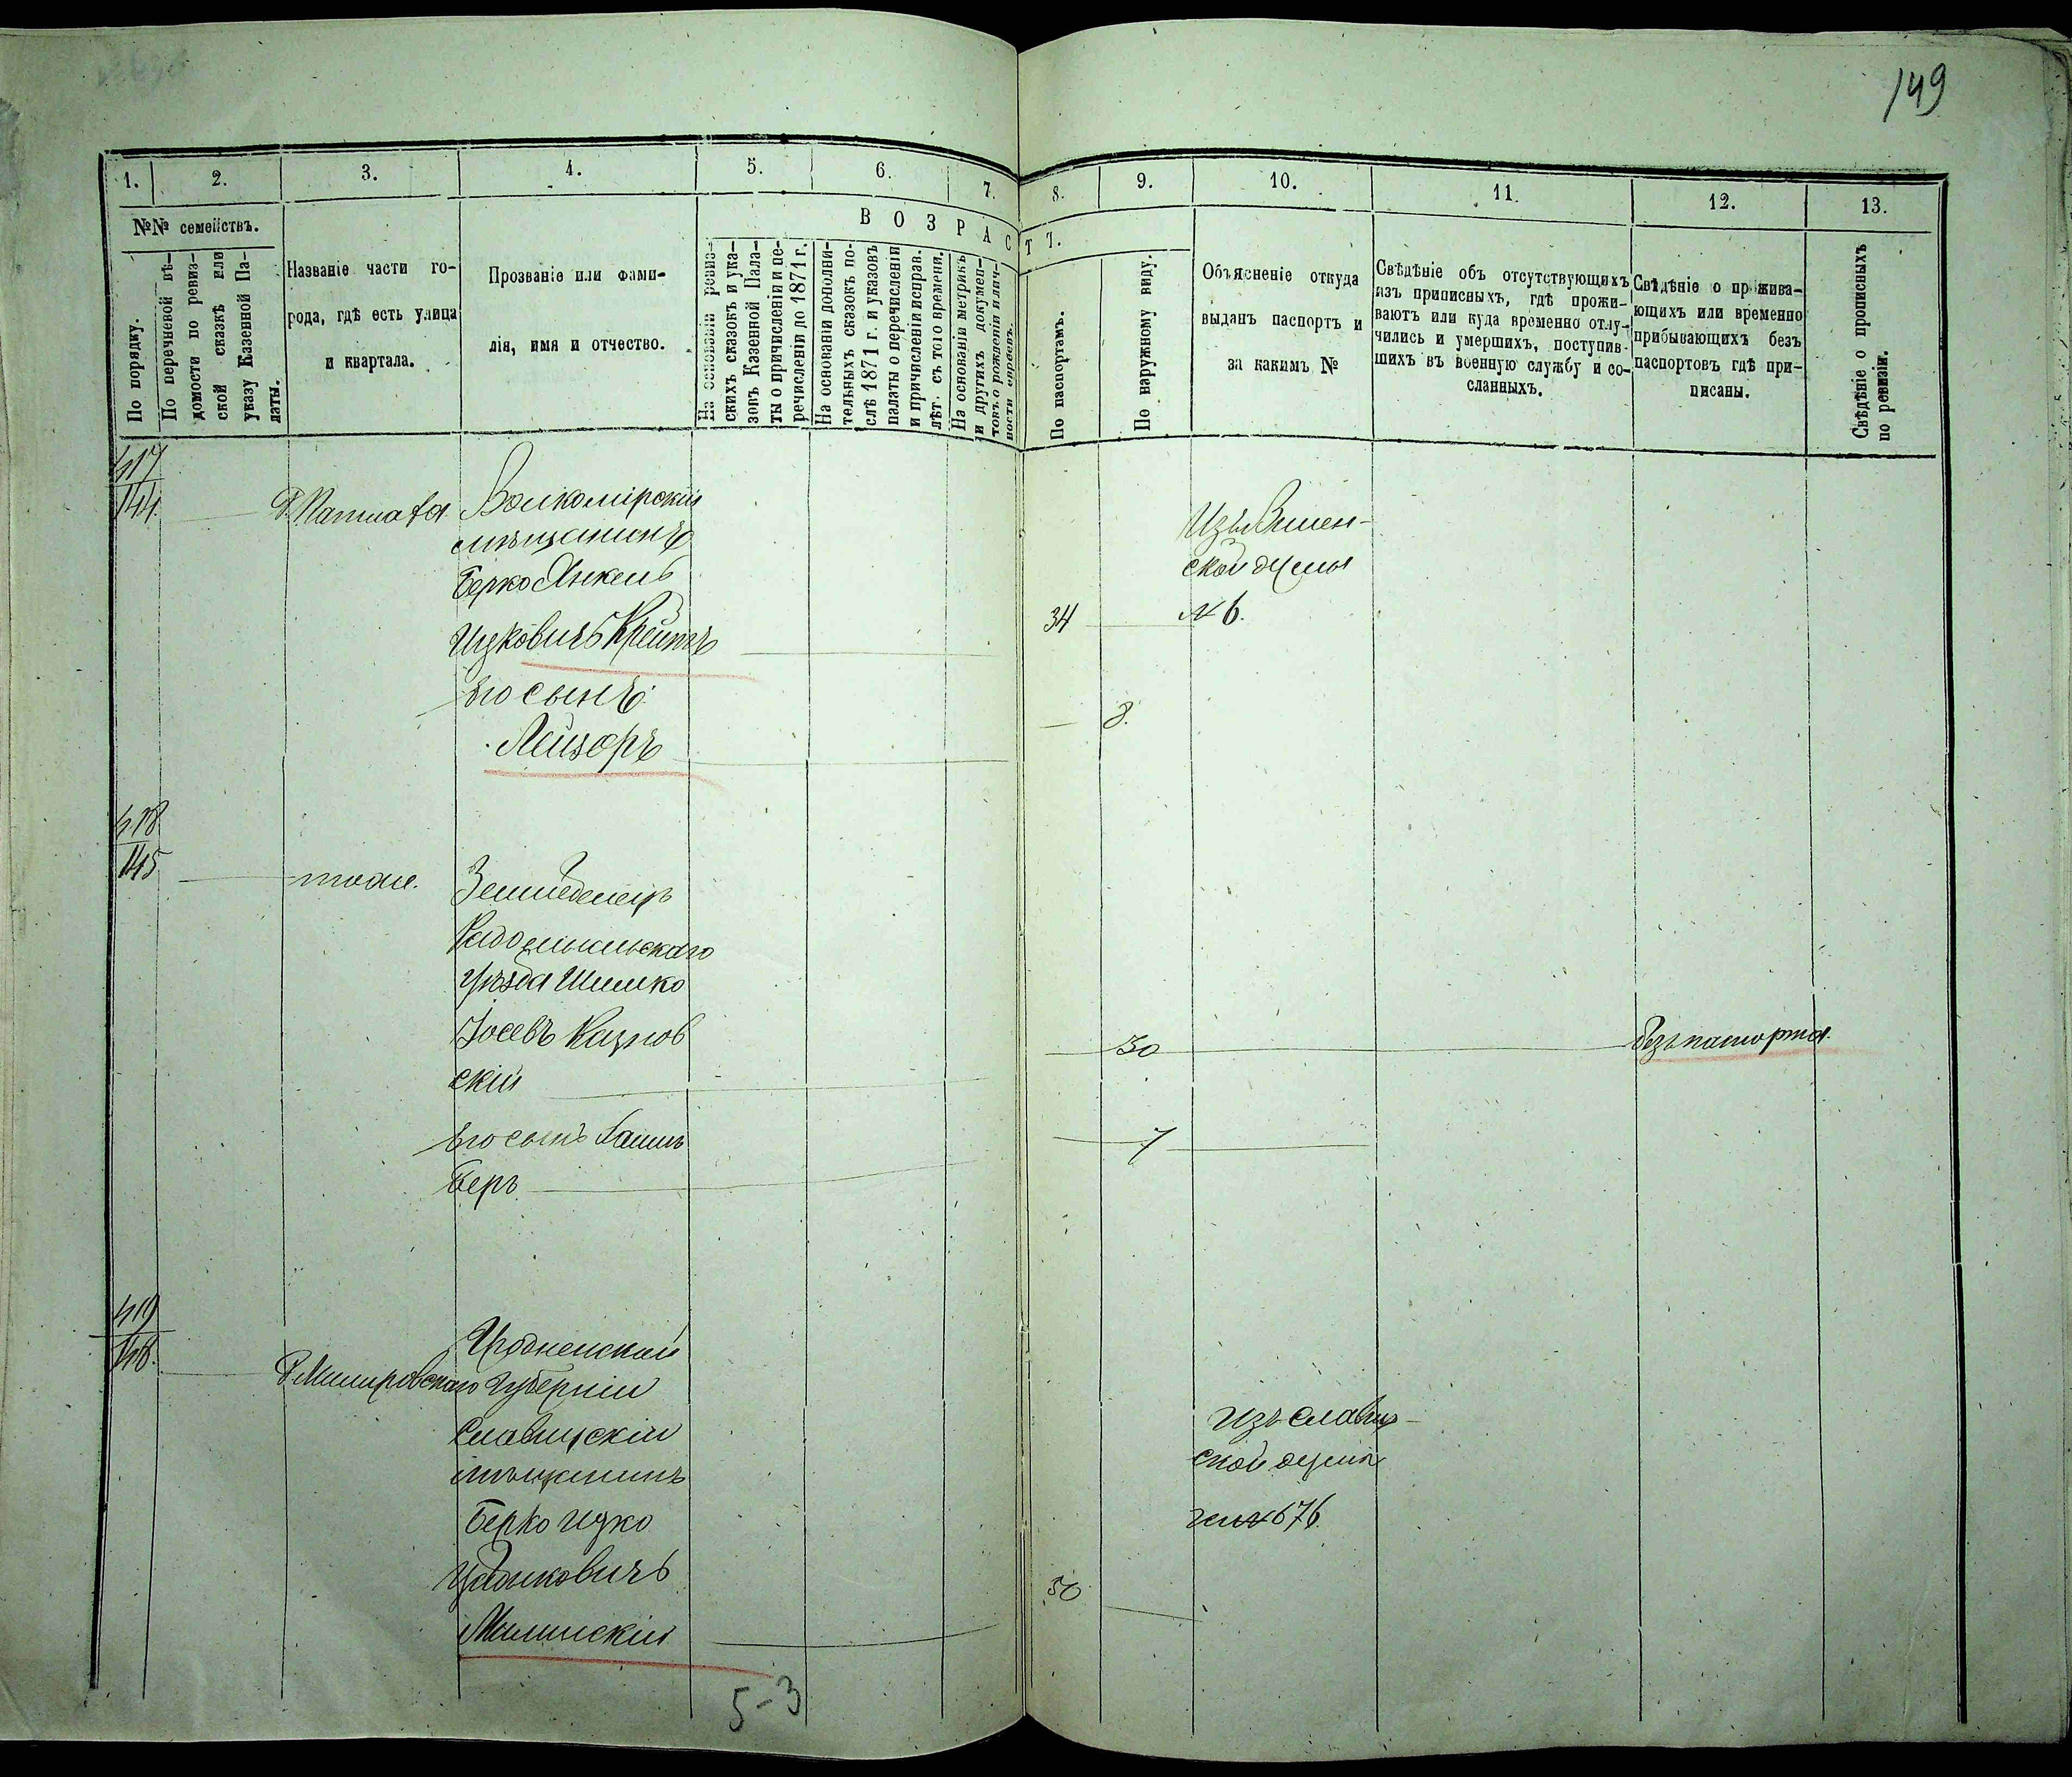 149
1. 2. 3. 4. 5. 6. 7. 8. 9. 10. 11. 12. 13.
№№ семействъ.
По порядку.
По перечневой вѣ-
домости по ревиз-
ской сказкѣ или
указу Казенной Па-
латы.
Названіе части го-
рода, гдѣ есть улица
и квартала.
Прозваніе или фами-
лія, имя и отчество.
ВОЗРАСТЪ.
На основаніи ревиз-
скихъ сказокъ и ука-
зовъ Казенной Пала-
ты о причисленіи и пе-
речисленіи до 1871 г.
На основаніи дополни-
тельныхъ сказокъ по-
слѣ 1871 г. и указовъ
палаты о перечисленіи
и причисленіи исправ.
лѣт. съ того времени.
На основаніи метрикъ
и другихъ докумен-
товъ о рожденіи и лич-
ности евреевъ.
По паспортамъ.
По наружному виду.
Объясненіе откуда
выданъ паспортъ и
за какимъ №
Свѣдѣніе объ отсутствующихъ
изъ приписныхъ, гдѣ прожи-
ваютъ или куда временно отлу-
чились и умершихъ, поступив-
шихъ въ военную службу и со-
сланныхъ.
Свѣдѣніе о прожива-
ющихъ или временно
прибывающихъ безъ
паспортовъ гдѣ при-
писаны.
Свѣдѣніе о прописныхъ
по ревизіи.
417
144
Волкомірскій
мѣщанинъ
Берко Янкель
Ицковичъ Крейнъ
34
Изъ Вилен-
ской думы
№ 6.
Его сынъ
Лейзоръ
8.
418
145
тоже.
Земледелецъ
Радомысльскаго
уѣзда Шимко
Іосевъ Казнов
скій
50
безъ паспорта.
Его сынъ Хаимъ
Беръ
7
419
146.
Гродненской
Губерніи
мѣщанинъ
Берко Ицко
50
ской думы
676.
5-3